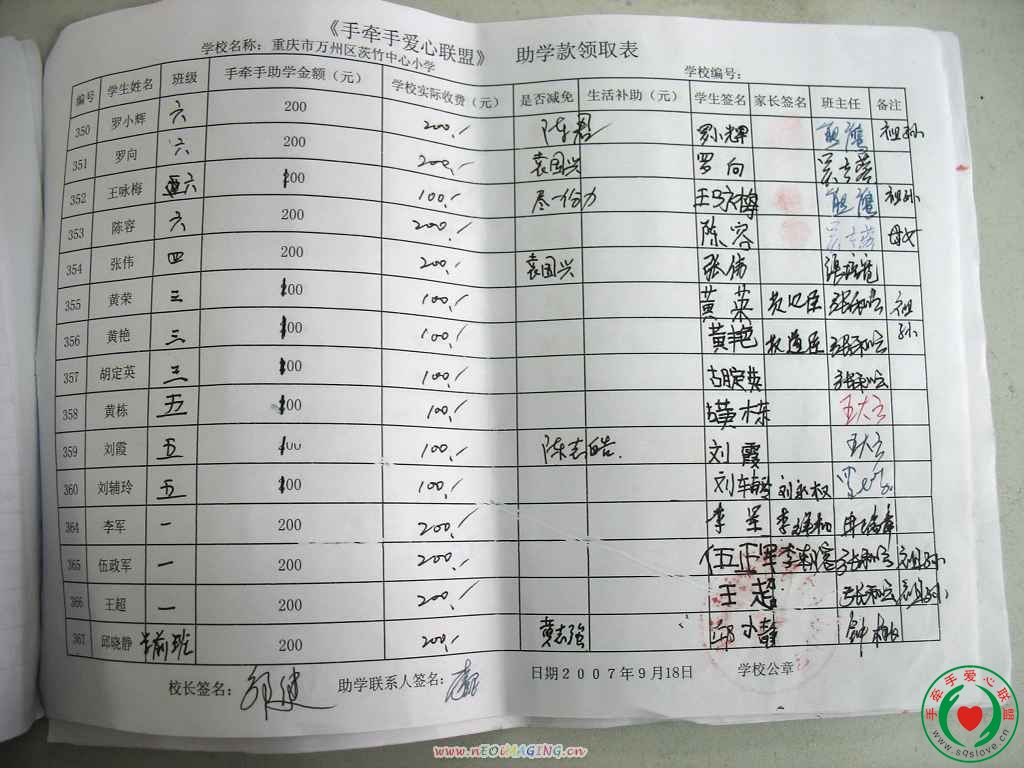 《手牵手爱心联盟》 助学款领取表
学校名称：重庆市万州区茨竹中心小学 学校编号：
编号 学生姓名 班级 手牵手助学金额（元） 学校实际收费（元） 是否减免 生活补助（元） 学生签名 家长签名 班主任 备注
350 罗小辉 六 200 200./ 陈君 罗小辉 祖孙
351 罗向 六 200 200./ 袁国兴 罗向
352 王咏梅 六 100 100./ 尽一份力 王咏梅 祖孙
353 陈容 六 200 200./ 陈容 母女
354 张伟 四 200 200./ 袁国兴 张伟
355 黄荣 三 100 100./ 黄荣 祖
356 黄艳 三 100 100./ 黄艳 孙
357 胡定英 三 100 100./ 胡定英
358 黄栋 五 100 100./ 黄栋
359 刘霞 五 100 100./ 陈志皓. 刘霞
360 刘辅玲 五 100 100./ 刘永权
364 李军 一 200 200./ 李军
365 伍政军 一 200 200./ 伍正军 祖孙
366 王超 一 200 200./ 王超 祖孙
367 邱晓静 学前班 200 200./ 黄志强 邱小静
校长签名： 助学联系人签名： 日期２００７年９月18日 学校公章：
www.nEOiMAGING.cn
手牵手爱心联盟
www.sqslove.cn